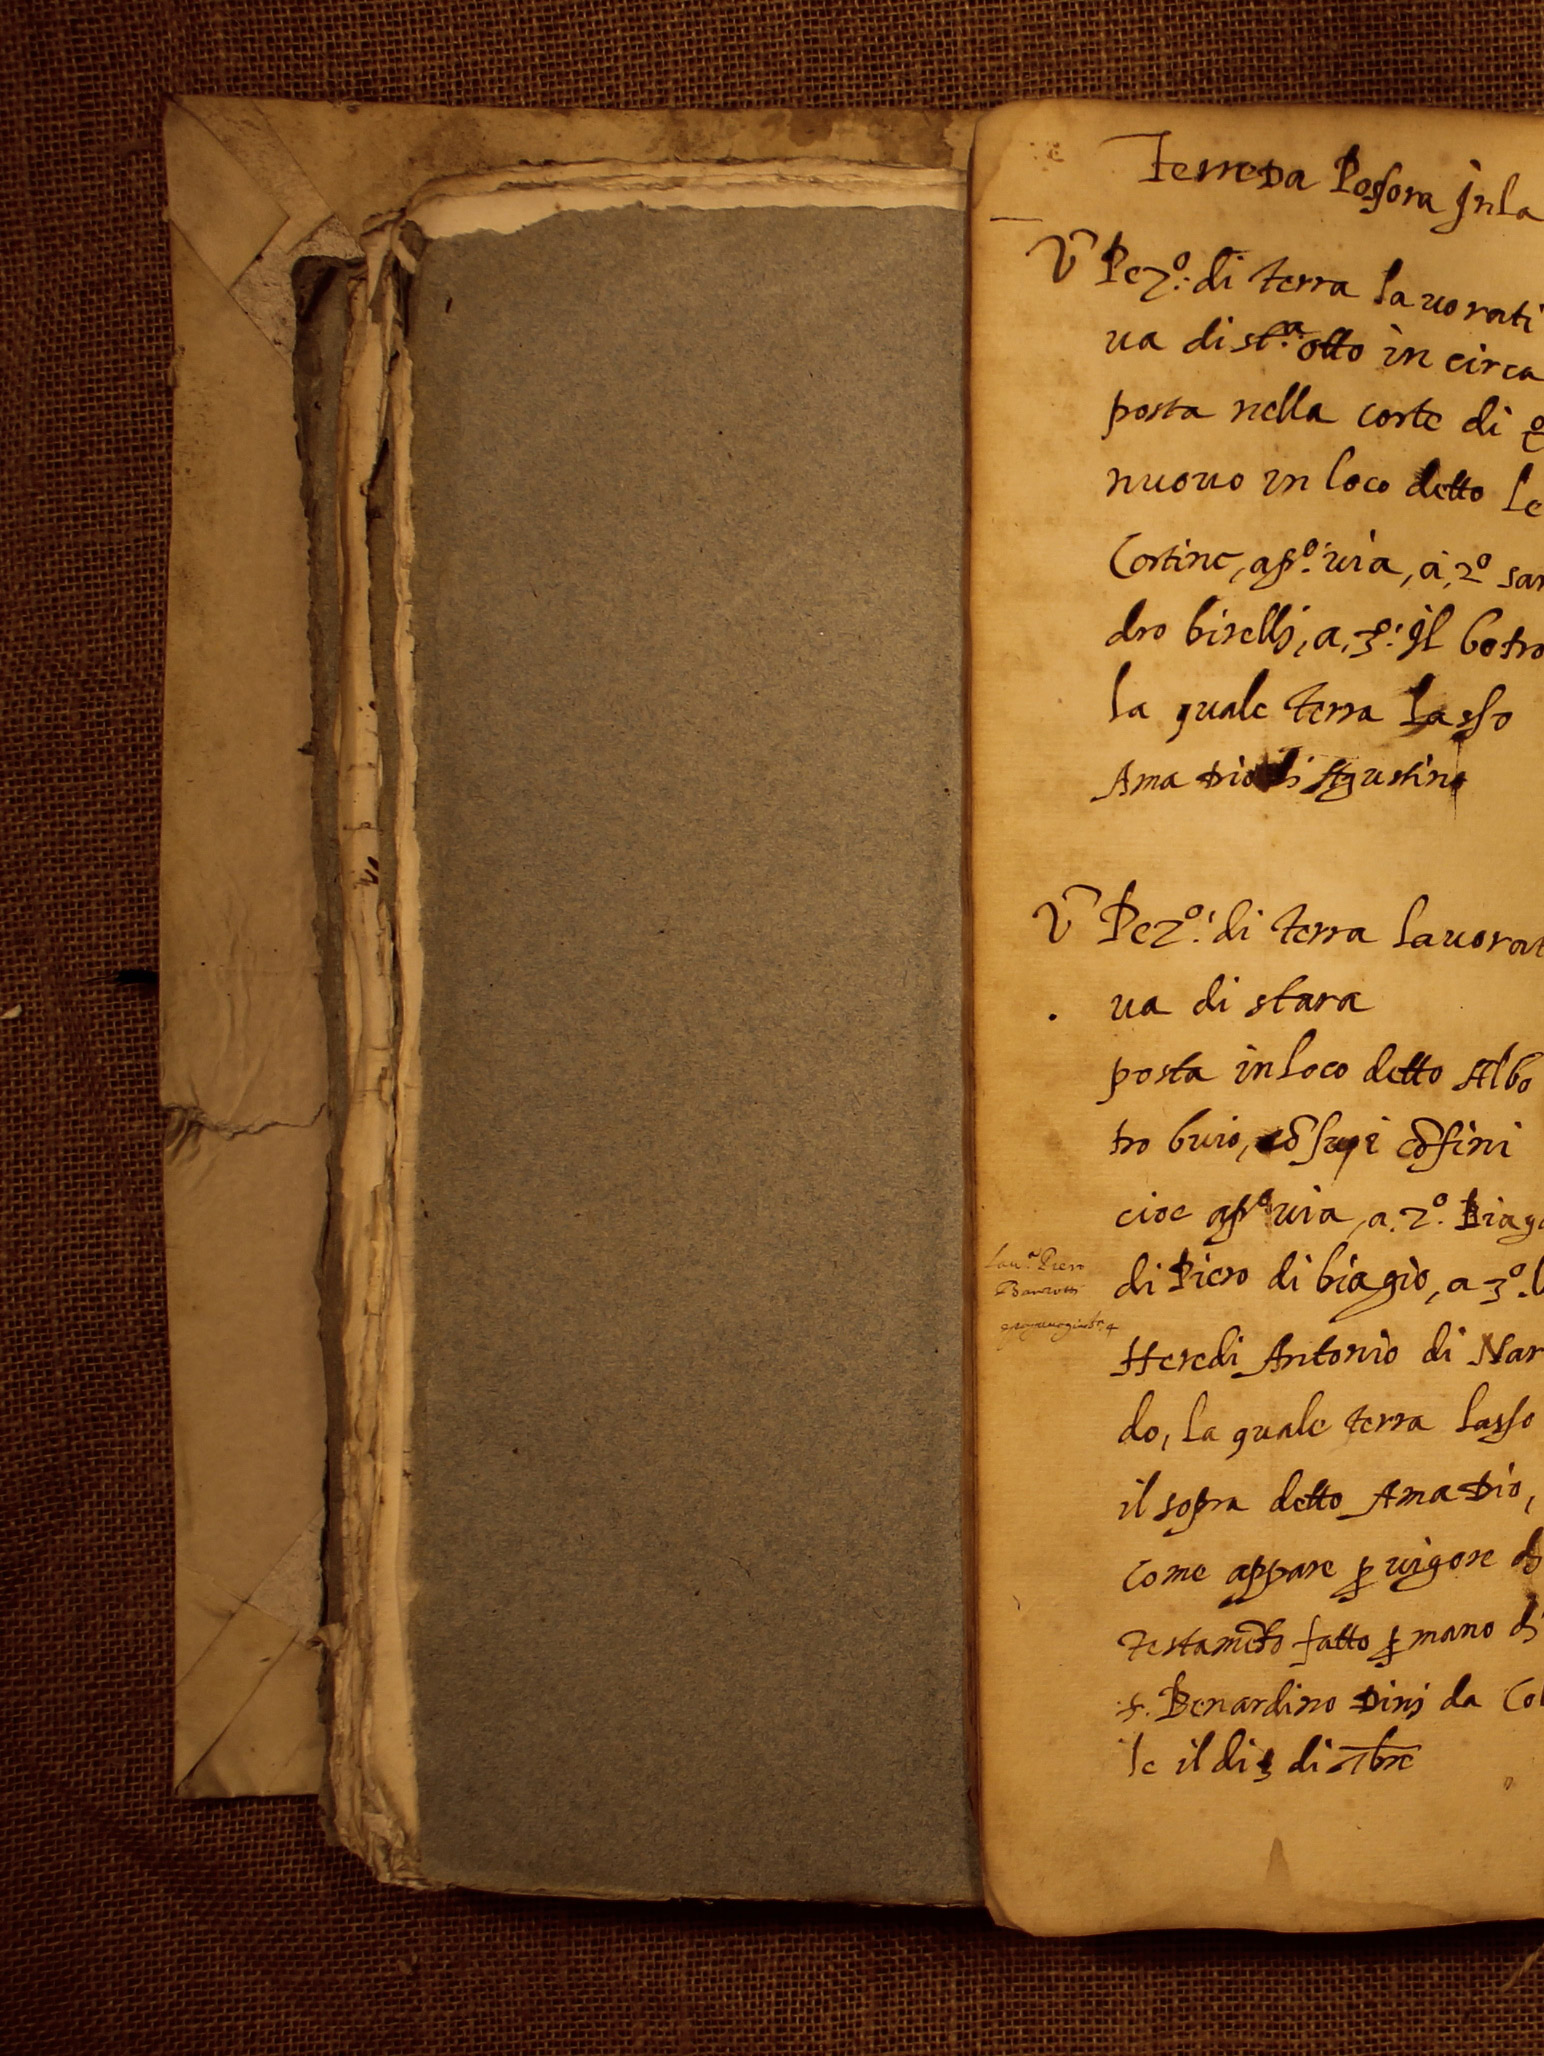 Terreda Possora Jnla
Ũ Pez.º: di terra lauorati
ua di st.ª otto in circa
posta nella corte di
nuouo in loco detto Le
Cortine, a pº. uia, a, 2º san
dro biselli, a, 3º: il botro
la quale terra lasso
Amadio di Agustino
Ũ Pez.º: di terra lauorat
ua di stara
posta in loco detto Albo
tro buio, cõ suoi cõfini
cioe a pº uia, a. 2º. Biagi
di Piero di biagio, a 3º. l
Lau.ª Piero
Heredi Antonio di Nar
do, la quale terra lasso
il sopra detto Amadio,
come appare ꝑ uigore di
testamẽto fatto ꝑ mano di
s. Benardino Dini da Col
le il di 3 di